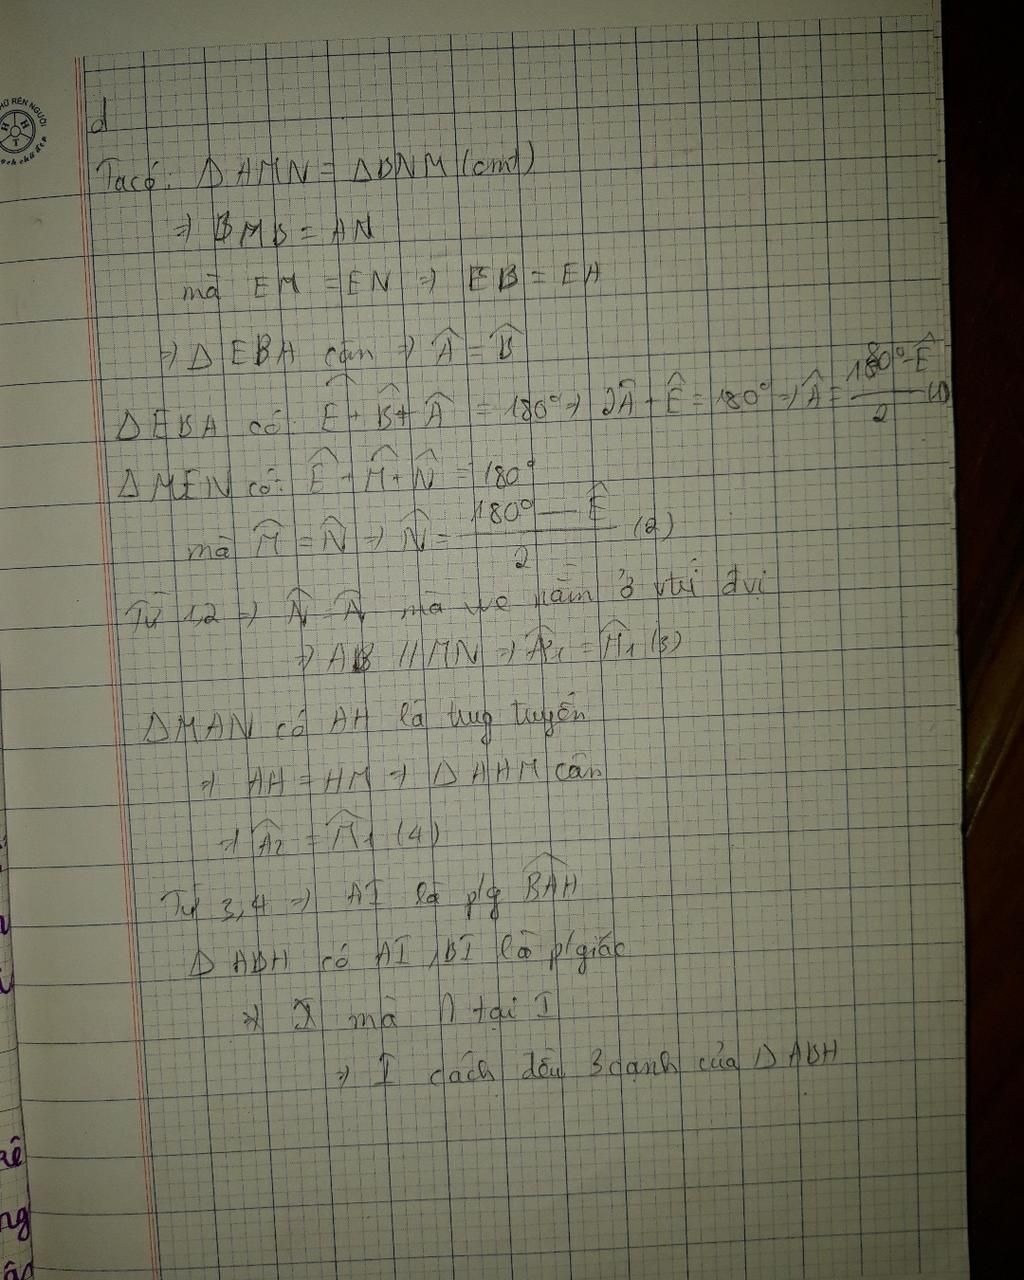 HỮ RÈN NGƯỜI
H H T
d
Ta có: Δ AMN = Δ BNM (cmt)
⇒ BMB = AN
mà EM = EN ⇒ EB = EA
⇒ Δ EBA cân ⇒ Â = B̂
Δ EBA có: Ê + B̂ + Â = 180° ⇒ 2Â + Ê = 180° ⇒ Â = (180° - Ê)/2 (1)
Δ MEN có: Ê + M̂ + N̂ = 180°
mà M̂ = N̂ ⇒ N̂ = (180° - Ê)/2 (2)
Từ 1,2 ⇒ N̂ = Â mà nằm ở vtrí đvị
⇒ AB // MN ⇒ Â1 = M̂1 (3)
Δ MAN có AH là trug tuyến
⇒ AH = HM ⇒ Δ AHM cân
⇒ Â2 = M̂1 (4)
Từ 3,4 ⇒ AI là p/g BAH
Δ ABH có AI, BI là p/giác
⇒ mà ∩ tại I
⇒ I cách đều 3 cạnh của Δ ABH